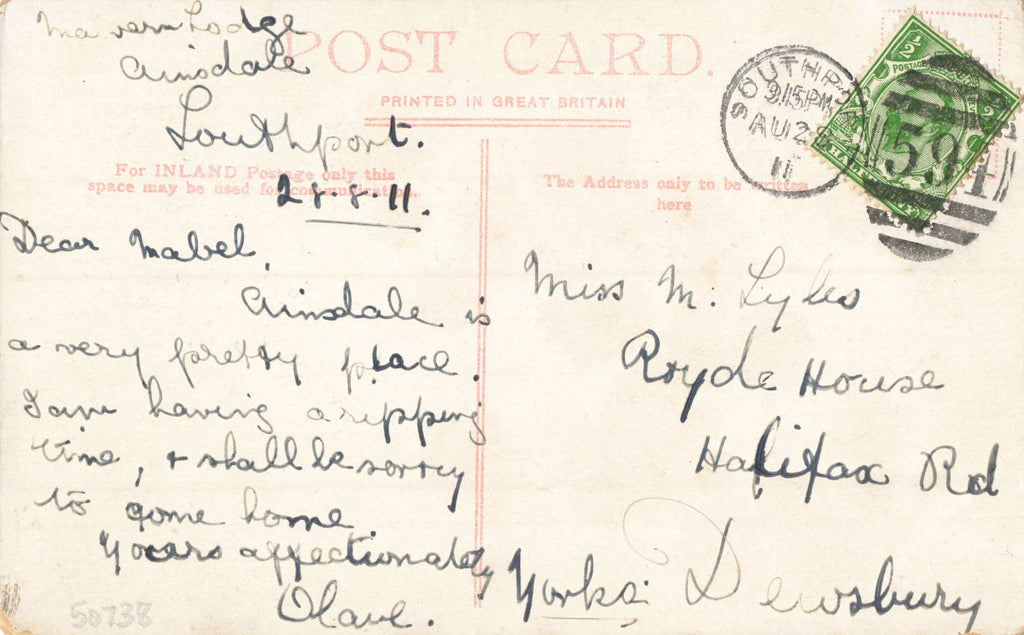 Malvern Lodge
Ainsdale
Southport.
28.8.11.
POST CARD.
PRINTED IN GREAT BRITAIN
For INLAND Postage only this
space may be used for communication.
The Address only to be written
here
Dear Mabel,
Ainsdale is
a very pretty place.
I am having a ripping
time, & shall be sorry
to come home.
Yours affectionately
Olave.
50738
Miss M. Lyles
Royde House
Halifax Rd
Dewsbury
Yorks.
SOUTHPORT
9.15PM
AU 28
11
591
½ ½
POSTAGE